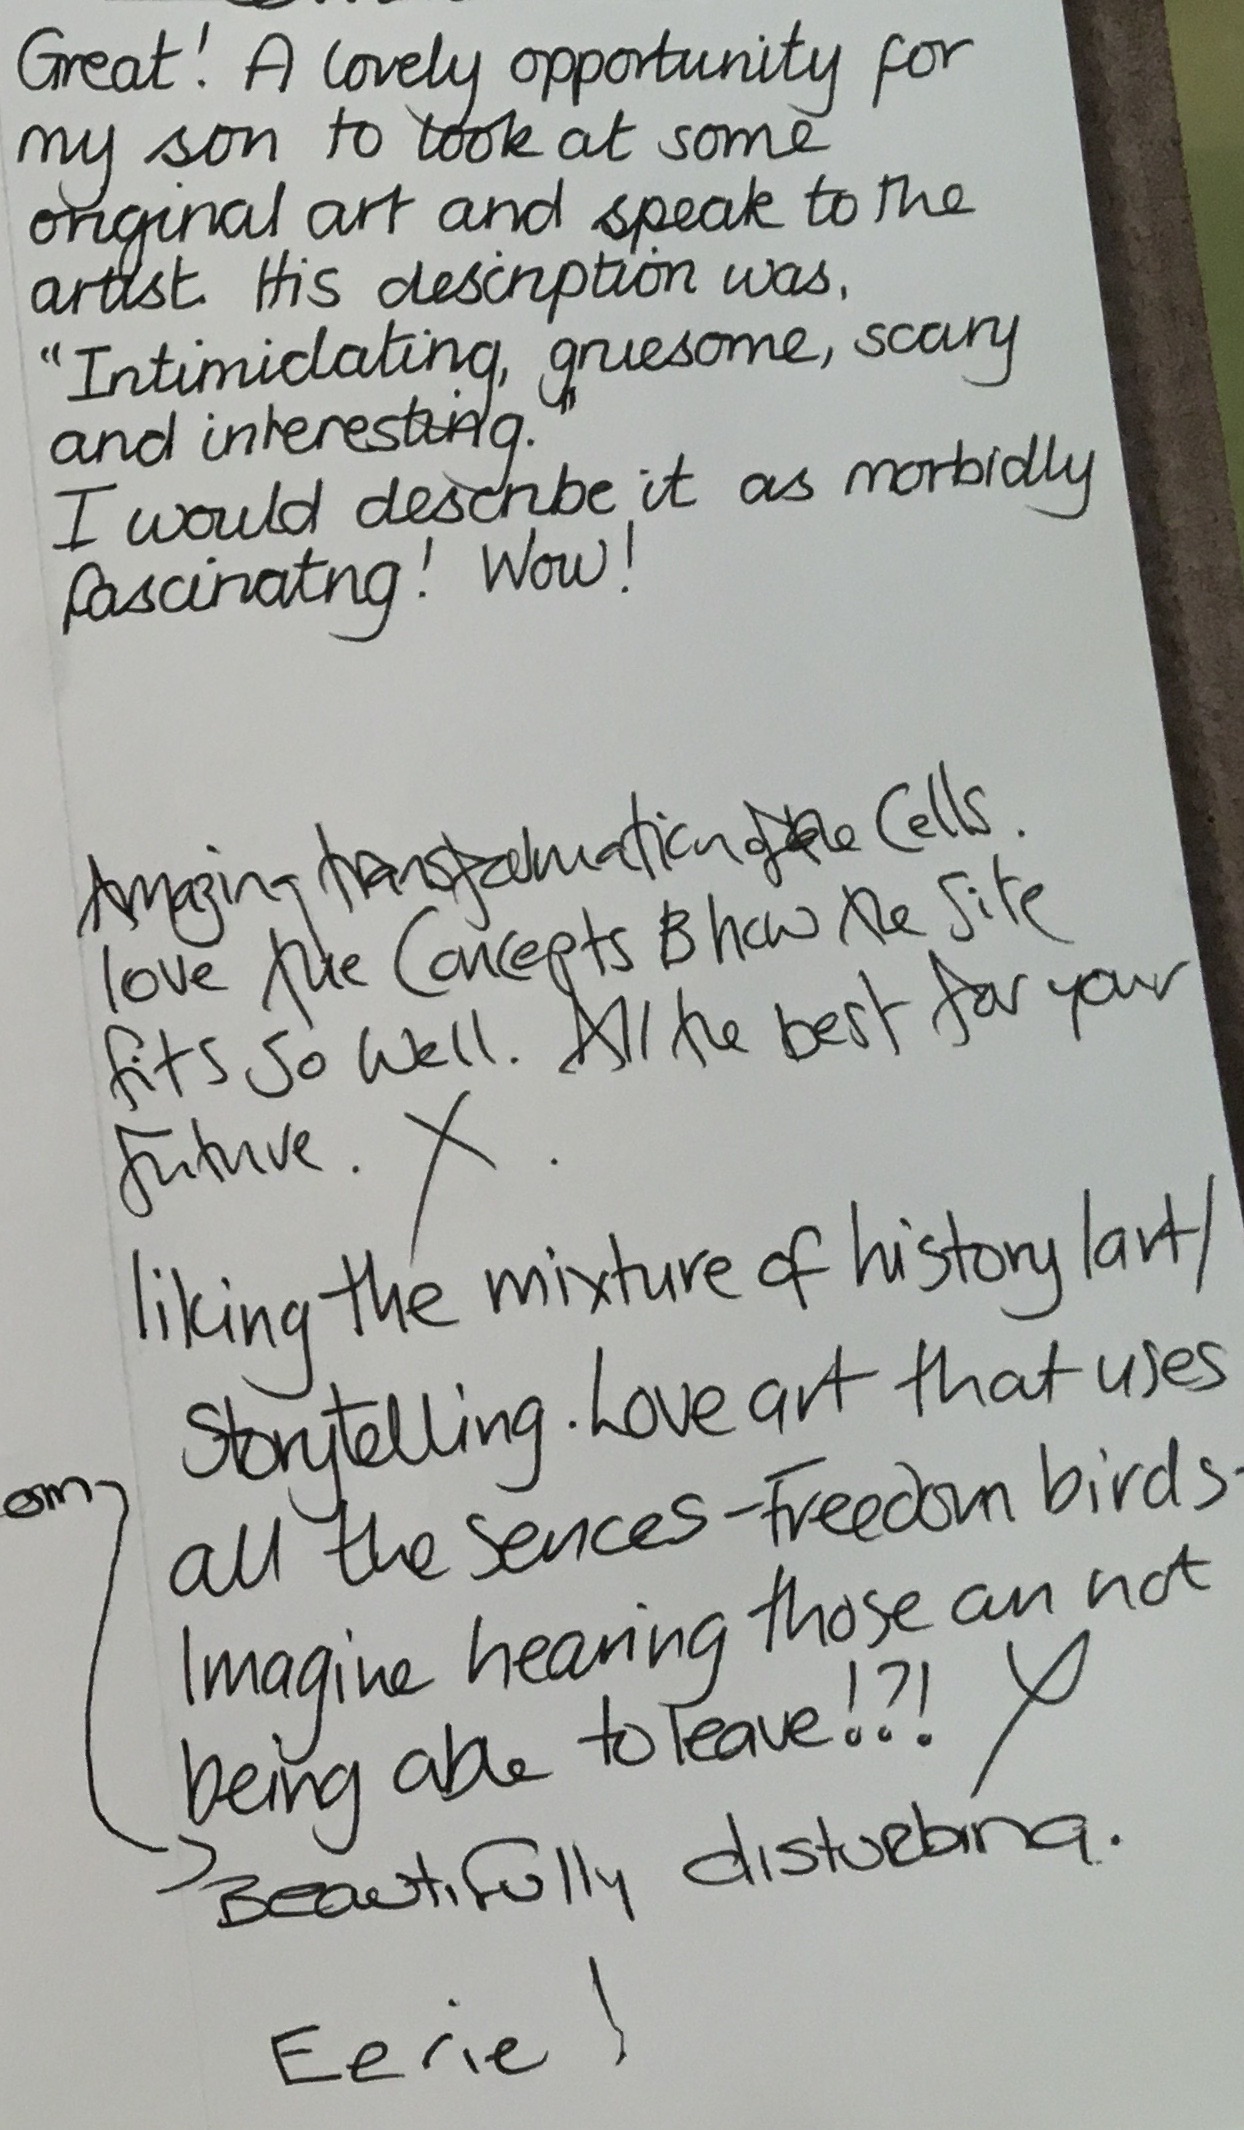 Great! A lovely opportunity for
my son to look at some
original art and speak to the
artist. His description was,
"Intimidating, gruesome, scary
and interesting."
I would describe it as morbidly
fascinatng! Wow!
Amazing transformation of the Cells.
love the Concepts & how the site
fits so well. All the best for your
future. X.
liking the mixture of history/art/
Storytelling. Love art that uses
all the sences - Freedom birds -
Imagine hearing those an not
being able to leave!?! X
Beautifully disturbing.
Eerie!